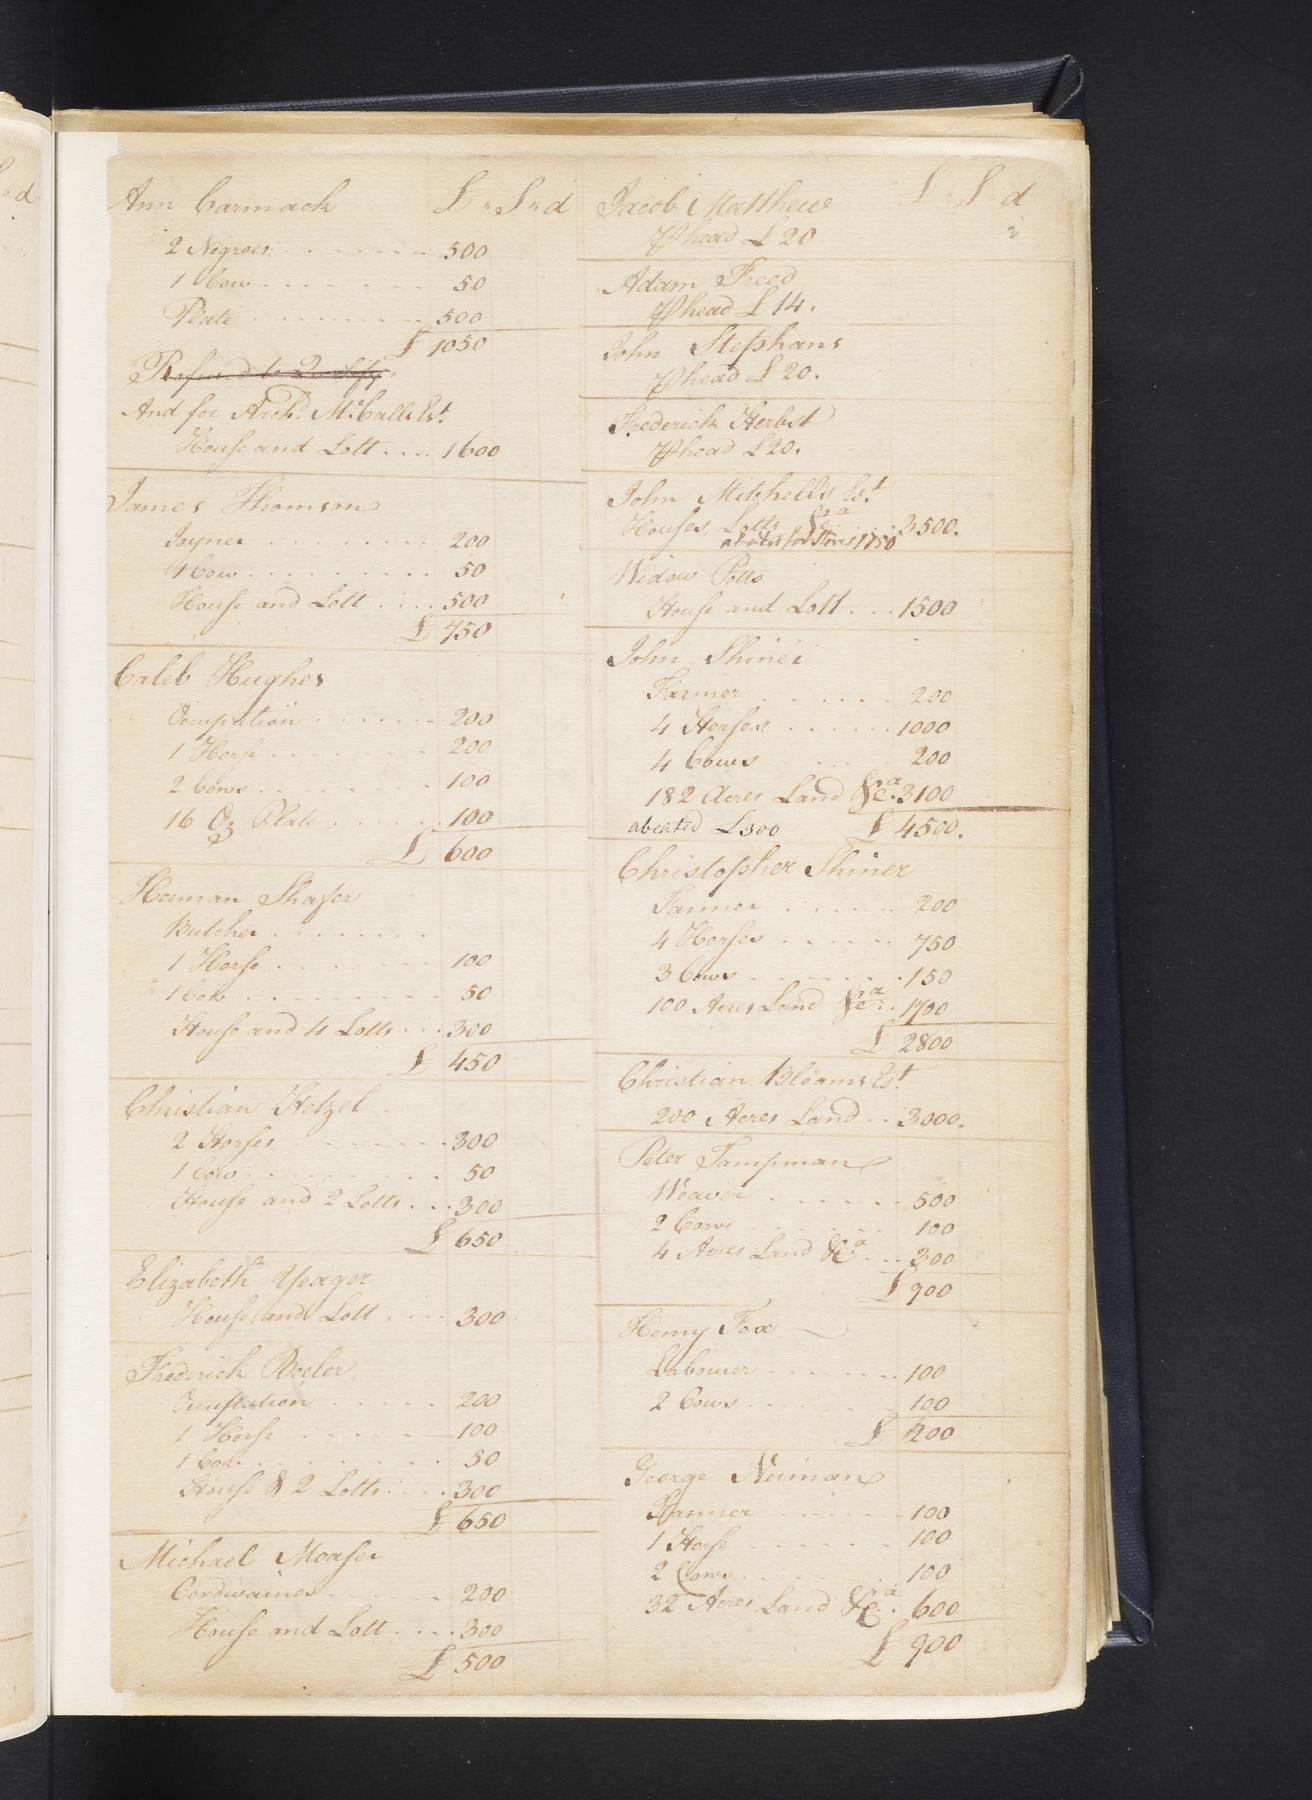 Ann Carmack £ " S " d
2 Negroes 500
1 Cow 50
Plate 500
£ 1050
Refused to Qualify
And for Archd. McCalls Est.
House and Lott 1600
James Thomson
Joyner 200
1 Cow 50
House and Lott 500
£ 750
Caleb Hughes
Occupation 200
1 Horse 200
2 Cows 100
16 Oz Plate 100
£ 600
Herman Shafer
Butcher
1 Horse 100
1 Cow 50
House and 4 Lotts 300
£ 450
Christian Hetzel
2 Horses 300
1 Cow 50
House and 2 Lotts 300
£ 650
Elizabeth Yeager
House and Lott 300
Frederick Beeler
Occupation 200
1 Horse 100
1 Cow 50
House & 2 Lotts 300
£ 650
Michael Moaser
Cordwainer 200
House and Lott 300
£ 500
Jacob Matthew £ S d
⅌ head £ 20
2
Adam Freed
⅌ head £ 14.
John Stephans
⅌ head £ 20.
Frederick Herbst
⅌ head £ 20.
John Mitchell's Est.
Houses, Lotts &ca 3500.
1750
Widow Potts
House and Lott 1500
John Shiner
Farmer 200
4 Horses 1000
4 Cows 200
182 Acres Land &ca. 3100
abeated £300 £ 4500.
Christopher Shiner
Farmer 200
4 Horses 750
3 Cows 150
100 Acres Land &ca. 1700
£ 2800
Christian Bleams Est.
200 Acres Land 3000.
Peter Tampman
Weaver 500
2 Cows 100
4 Acres Land &ca. 300
£ 900
Henry Fox
Labourer 100
2 Cows 100
£ 200
George Neiman
Farmer 100
1 Horse 100
2 Cows 100
32 Acres Land &ca. 600
£ 900
d